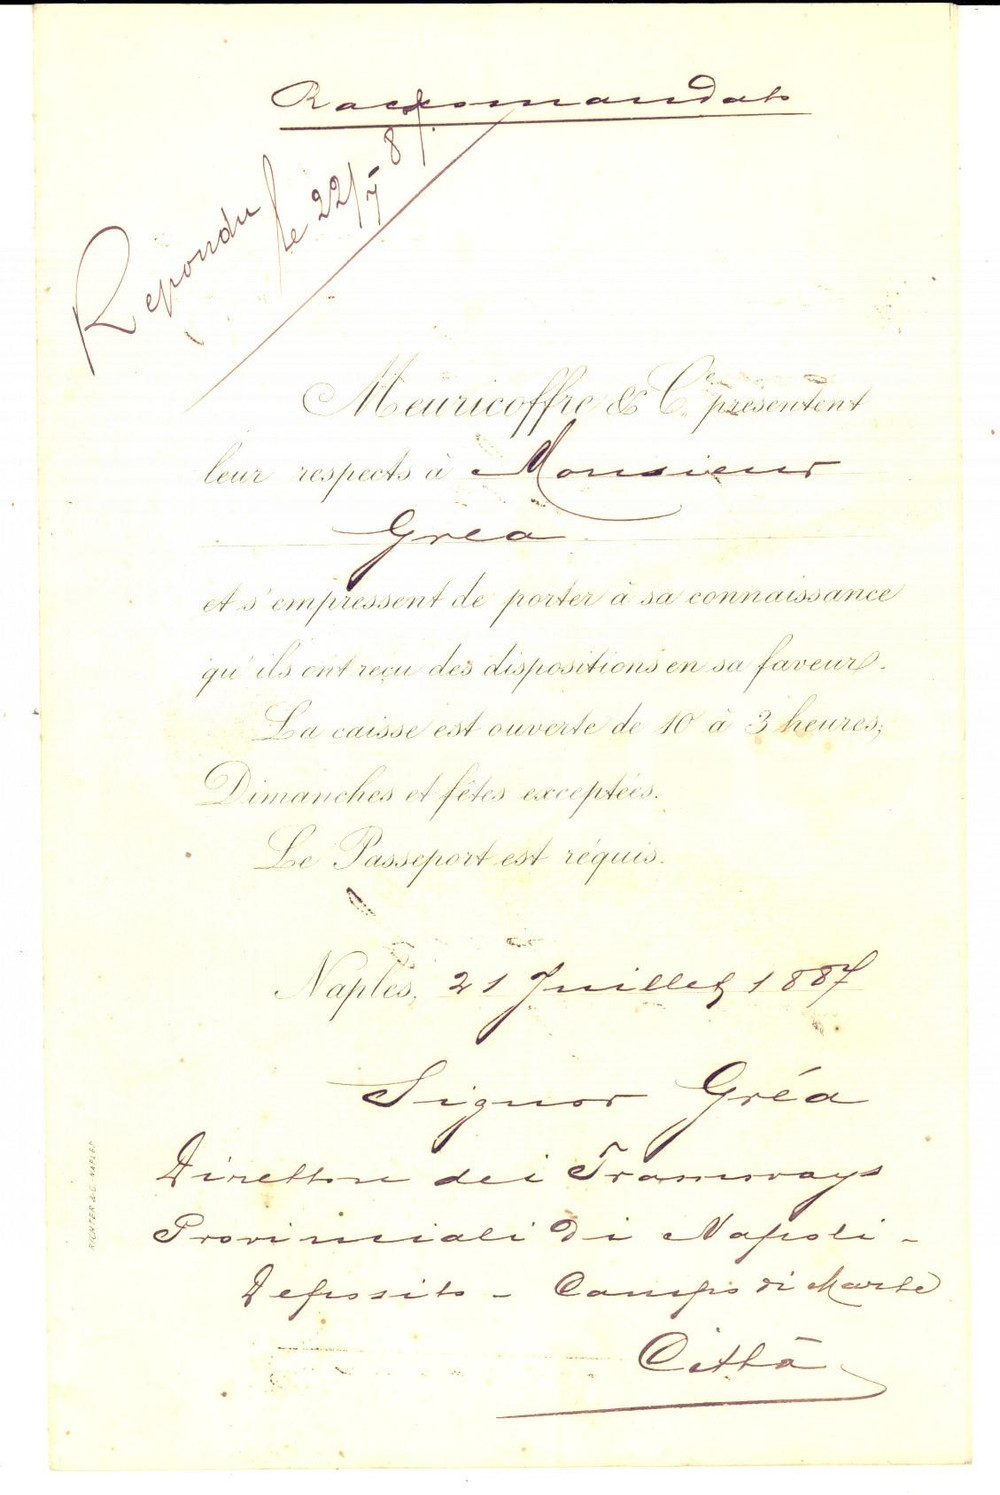 Raccomandato
Repondu
le 22/7 87.
Meuricoffre & Cie présentent
leur respects à Monsieur
Grea
et s'empressent de porter à sa connaissance
qu'ils ont reçu des dispositions en sa faveur.
La caisse est ouverte de 10 à 3 heures;
Dimanches et fêtes exceptées.
Le Passeport est réquis.
Naples, 21 Juillet 1887
Signor Gréa
Direttore dei Tramways
Provinciali di Napoli -
Deposito - Campo di Marte
Città
RICHTER & C. NAPLES